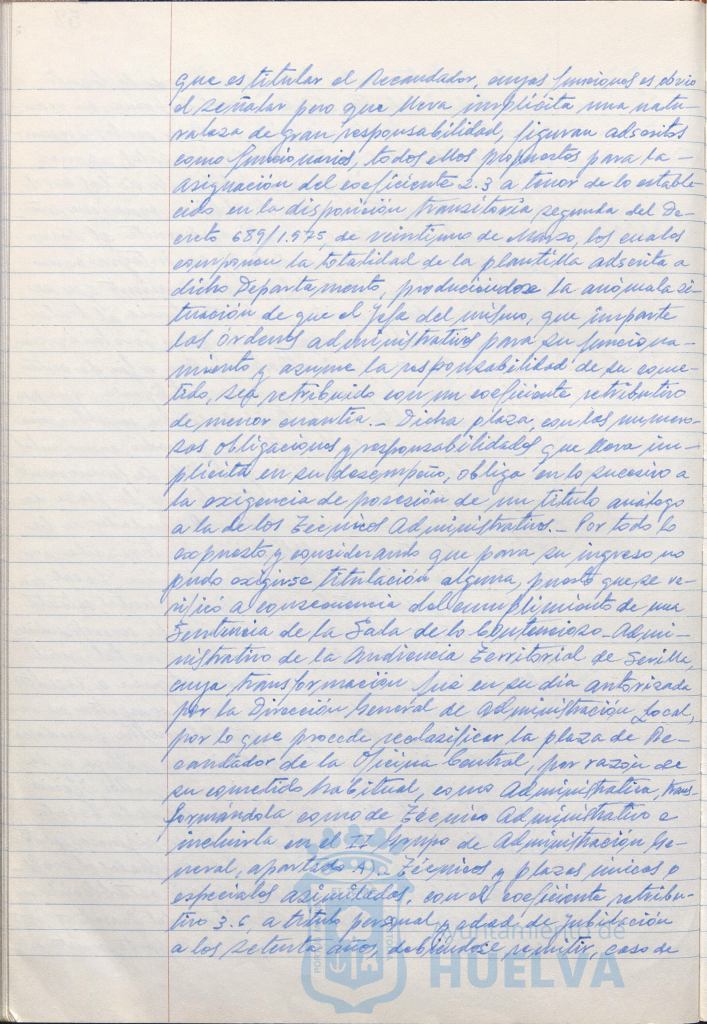 que es titular el Recaudador, cuyas funciones es obvio
el señalar pero que lleva implícita una natu-
raleza de gran responsabilidad, figuran adscritos
como funcionarios, todos ellos propuestos para la -
asignación del coeficiente 2.3 a tenor de lo estable-
cido en la disposición transitoria segunda del De-
creto 689/1.975, de veintiuno de Marzo, los cuales
componen la totalidad de la plantilla adscrita a
dicho Departamento, produciéndose la anómala si-
tuación de que el Jefe del mismo, que imparte
las órdenes administrativas para su funciona-
miento y asume la responsabilidad de su come-
tido, sea retribuido con un coeficiente retributivo
de menor cuantía.- Dicha plaza, con las numero-
sas obligaciones y responsabilidades que lleva im-
plícita en su desempeño, obliga en lo sucesivo a
la exigencia de posesión de un título análogo
a la de los Técnicos Administrativos.- Por todo lo
expuesto, y considerando que para su ingreso no
pudo exigirse titulación alguna, puesto que se ve-
rificó a consecuencia del cumplimiento de una
Sentencia de la Sala de lo Contencioso-Admi-
nistrativo de la Audiencia Territorial de Sevilla,
cuya transformación fué en su día autorizada
por la Dirección General de Administración Local,
por lo que procede reclasificar la plaza de Re-
caudador de la Oficina Central, por razón de
su cometido habitual, como Administrativa, trans-
formándola como de Técnico Administrativo e
incluirla en el II Grupo de Administración Ge-
neral, apartado A) Técnicos y plazas únicas o
especiales asimiladas, con el coeficiente retribu-
tivo 3.6, a título personal y edad de jubilación
a los setenta años, debiéndose remitir, caso de
Ayuntamiento de
HUELVA